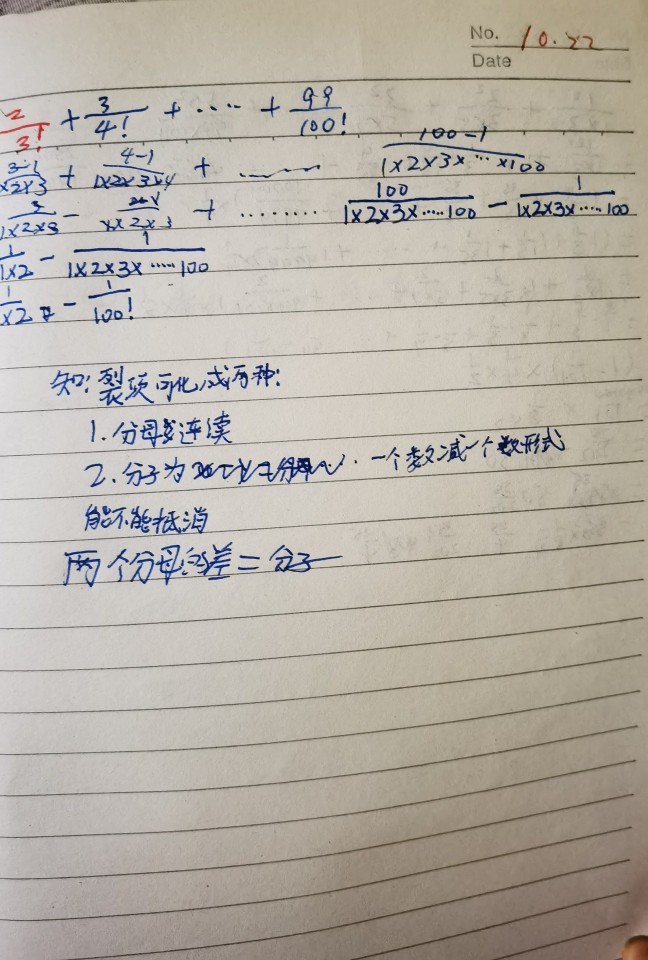 No. 10.22
Date
2/3! + 3/4! + ···· + 99/100!
3-1/×2×3 + 4-1/1×2×3×4 + ...... 100-1/1×2×3×···×100
3/1×2×3 - ×2×3 + ········ 100/1×2×3×·····100 - 1/1×2×3×·····100
1/1×2 - 1/1×2×3×·····100
1/×2 - 1/100!
知:裂项可化成两种:
1.分母要连续
2.分子为 一个数减一个数形式
能不能抵消
两个分母的差=分子